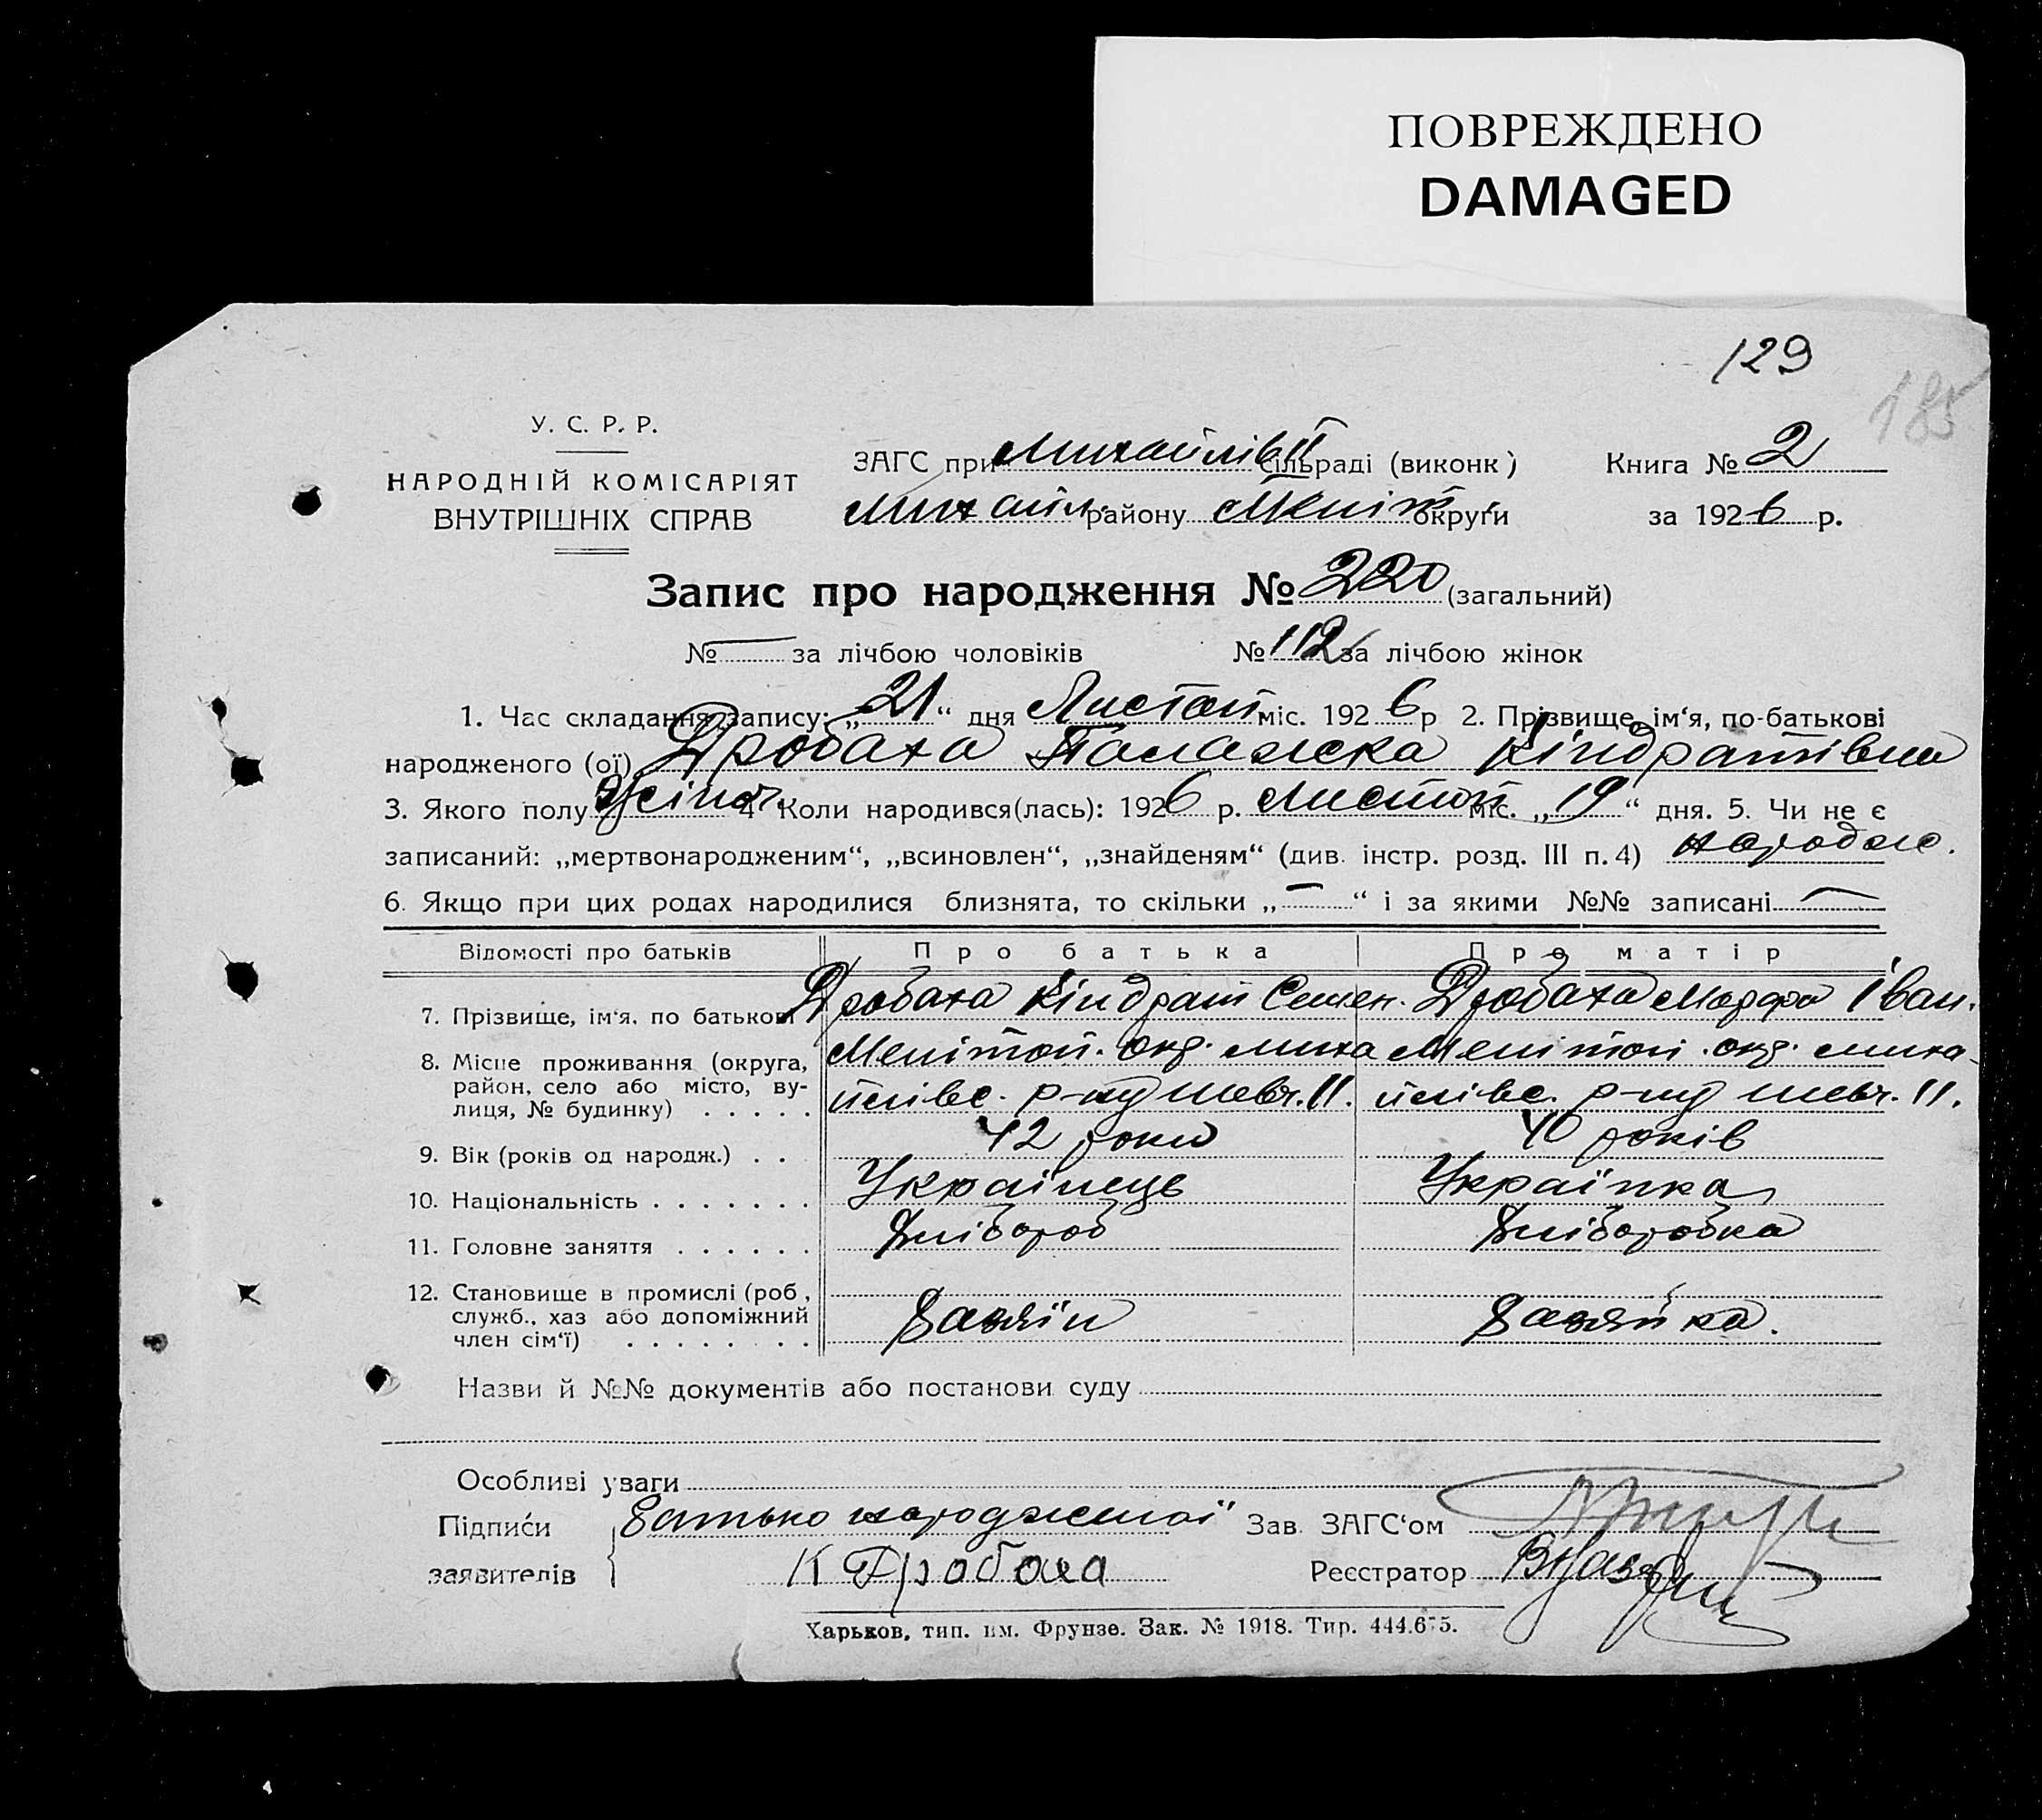 ПОВРЕЖДЕНО
DAMAGED
129
185
У. С. Р. Р.
НАРОДНІЙ КОМІСАРІЯТ
ВНУТРІШНІХ СПРАВ
ЗАГС при Михайлів II сільраді (виконк)
Михайл. району Меліт округи
Книга № 2
за 1926 р.
Запис про народження № 220 (загальний)
№ — за лічбою чоловіків № 112 за лічбою жінок
1. Час складання запису: „21“ дня Листоп міс. 1926 р 2. Прізвище, ім‘я, по-батькові
народженого (ої) Дробаха Палажка Кіндратівна
3. Якого полу жіноч. 4 Коли народився(лась): 1926 р. Листоп міс. „19“ дня. 5. Чи не є
записаний: „мертвонародженим“, „всиновлен“, „знайденям“ (див. інстр. розд. III п. 4) народж.
6. Якщо при цих родах народилися близнята, то скільки „—“ і за якими №№ записані —
Відомості про батьків Про батька Про матір
7. Прізвище, ім‘я, по батькові Дробаха Кіндрат Семен. Дробаха Марфа Іван.
8. Місце проживання (округа, район, село або місто, вулиця, № будинку) . . . . . Мелітоп. окр. Миха Мелітоп. окр. Миха-
йлівс. р-ну Шевч. II. йлівс. р-ну Шевч. II.
9. Вік (років од народж.) . . 42 роки 40 років
10. Національність . . . . . . . Українець Українка
11. Головне заняття . . . . . . Хлібороб Хліборобка
12. Становище в промислі (роб, служб., хаз або допоміжний член сім‘ї) . . . . . . . Хазяїн Хазяйка.
Назви й №№ документів або постанови суду
Особливі уваги
Підписи Батько народженої Зав. ЗАГС‘ом
заявителів К Дробаха Реєстратор
Харьков, тип. им. Фрунзе. Зак. № 1918. Тир. 444.675.